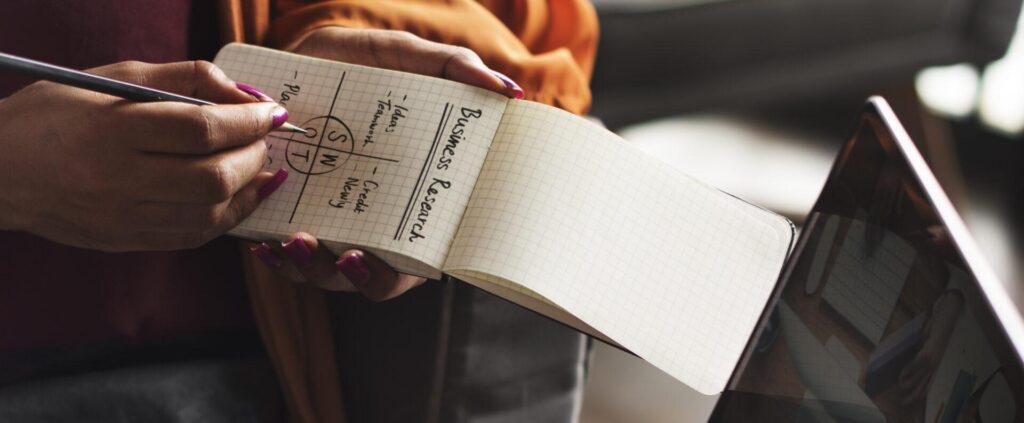 Business Research
- Ideas
- Teamwork
- Credit
Newly
S W
O T
- Plan